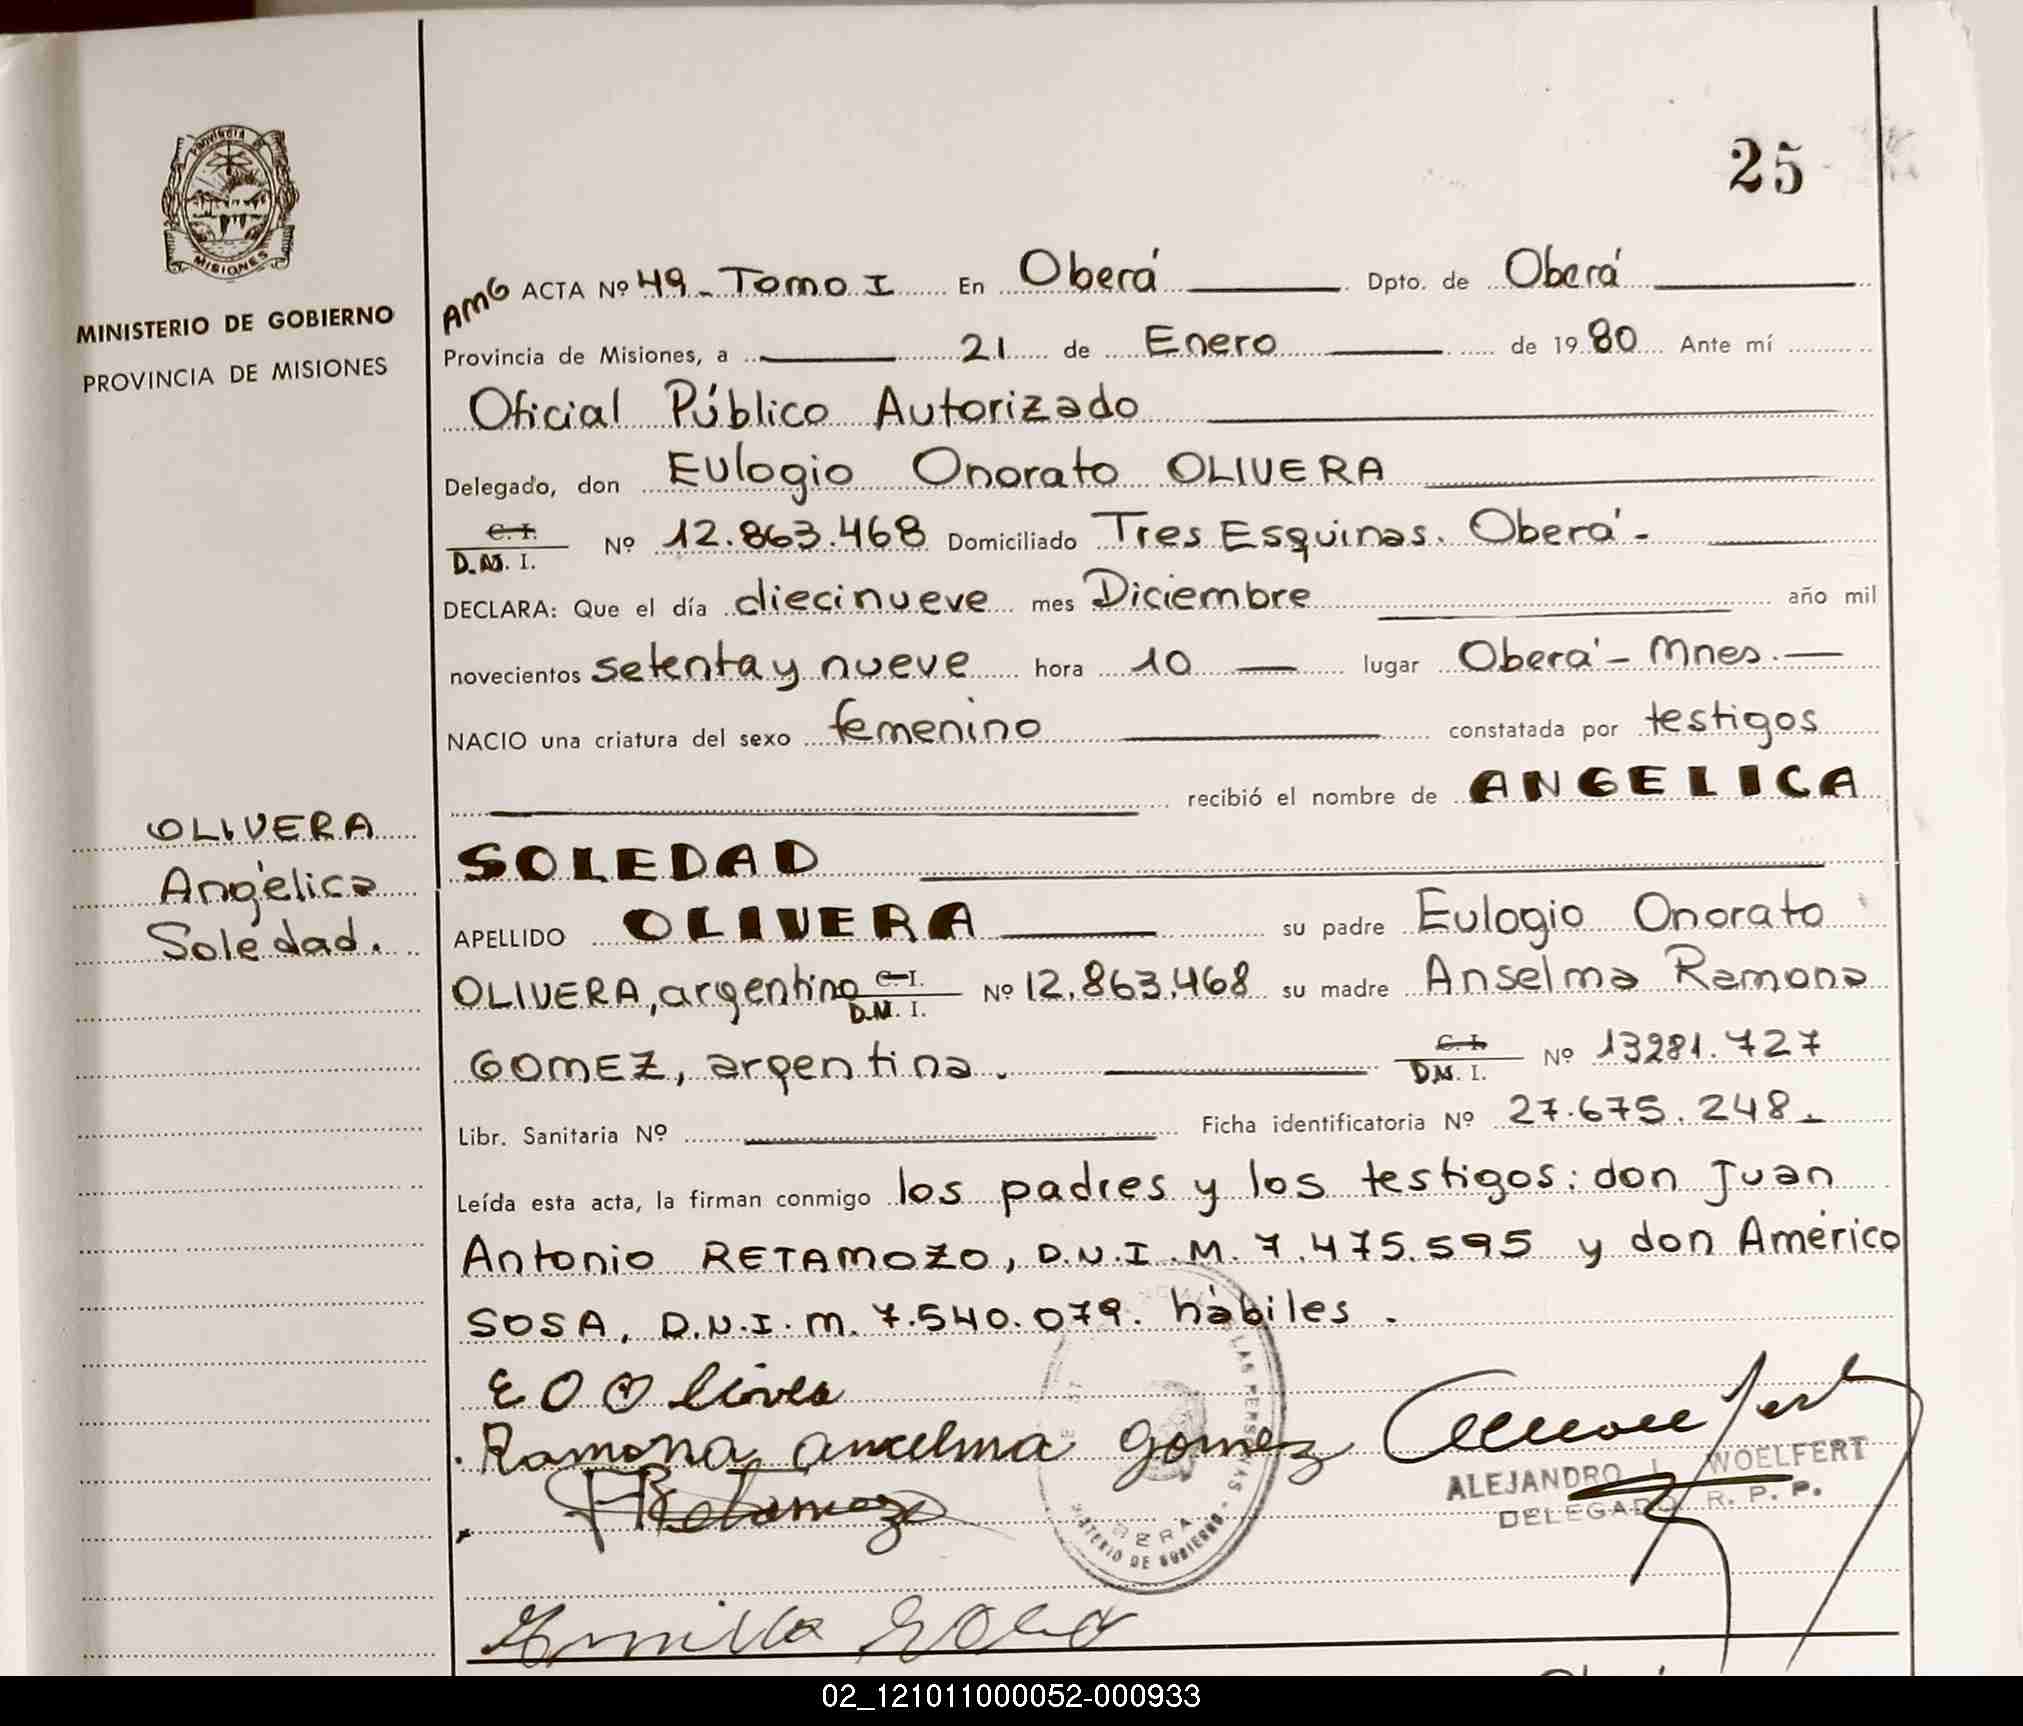 25
Provincia de
MISIONES
MINISTERIO DE GOBIERNO
PROVINCIA DE MISIONES
AMG ACTA Nº 49 - Tomo I En Oberá Dpto. de Oberá
Provincia de Misiones, a 21 de Enero de 1980 Ante mí
Oficial Público Autorizado
Delegado, don Eulogio Onorato OLIVERA
C. I.
D.N. I. Nº 12.863.468 Domiciliado Tres Esquinas. Oberá -
DECLARA: Que el día diecinueve mes Diciembre año mil
novecientos setenta y nueve hora 10 lugar Oberá - Mnes.
NACIO una criatura del sexo femenino constatada por testigos
recibió el nombre de ANGELICA
SOLEDAD
OLIVERA
Angélica
Soledad.
APELLIDO OLIVERA su padre Eulogio Onorato
OLIVERA, argentino C. I. D.M. I. Nº 12.863.468 su madre Anselma Ramona
GOMEZ, argentina. C. I. D.N. I. Nº 13281.727
Libr. Sanitaria Nº Ficha identificatoria Nº 27.675.248.
Leída esta acta, la firman conmigo los padres y los testigos: don Juan
Antonio RETAMOZO, D.N.I.M. 7.475.595 y don Américo
SOSA, D.N.I.M. 7.540.079. hábiles.
E O Olivera
Ramona Anselma Gomez
Retamozo
ALEJANDRO L. WOELFERT
DELEGADO R. P. P.
LAS PERSONAS
OBERA
MINISTERIO DE GOBIERNO
02_121011000052-000933